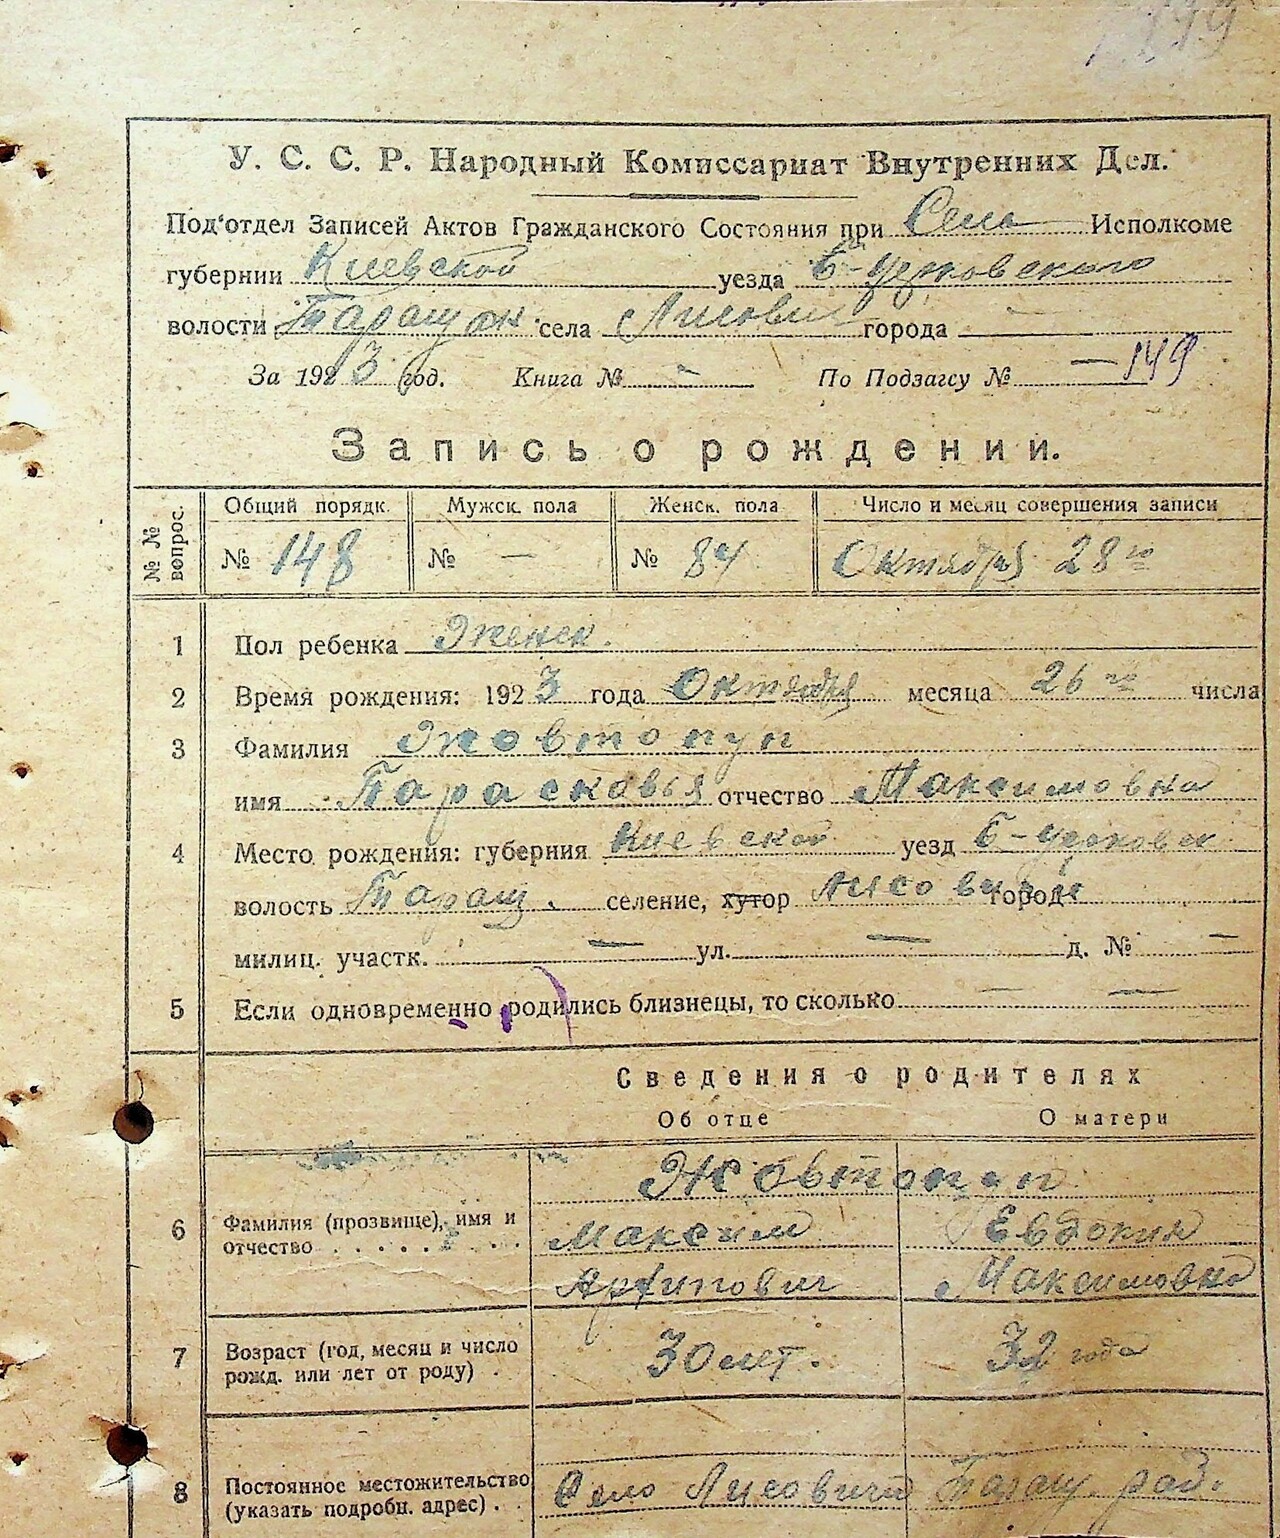 149
У. С. С. Р. Народный Комиссариат Внутренних Дел.
Под'отдел Записей Актов Гражданского Состояния при Сель Исполкоме
губернии Киевской уезда Б-Церковского
волости Таращан. села Лисовичи города —
За 1923 год. Книга № - По Подзагсу № — 149
Запись о рождении.
№ № вопрос. Общий порядк. Мужск. пола Женск. пола Число и месяц совершения записи
№ 148 № — № 84 Октября 28го
1 Пол ребенка Женск.
2 Время рождения: 1923 года Октября месяца 26го числа
3 Фамилия Жовтопуп
имя Парасковья отчество Максимовна
4 Место рождения: губерния Киевской уезд Б-Церковск
волость Таращ. селение, хутор Лисовичи город
милиц. участк. — ул. — д. № —
5 Если одновременно родились близнецы, то сколько — —
Сведения о родителях
Об отце О матери
Жовтопуп
6 Фамилия (прозвище), имя и Максим Евдокия
отчество . . . . . . . . Архипович Максимовна
7 Возраст (год, месяц и число 30 лет. 32 года
рожд. или лет от роду) .
8 Постоянное местожительство Село Лисовичи Таращ. рай.
(указать подробн. адрес) . .